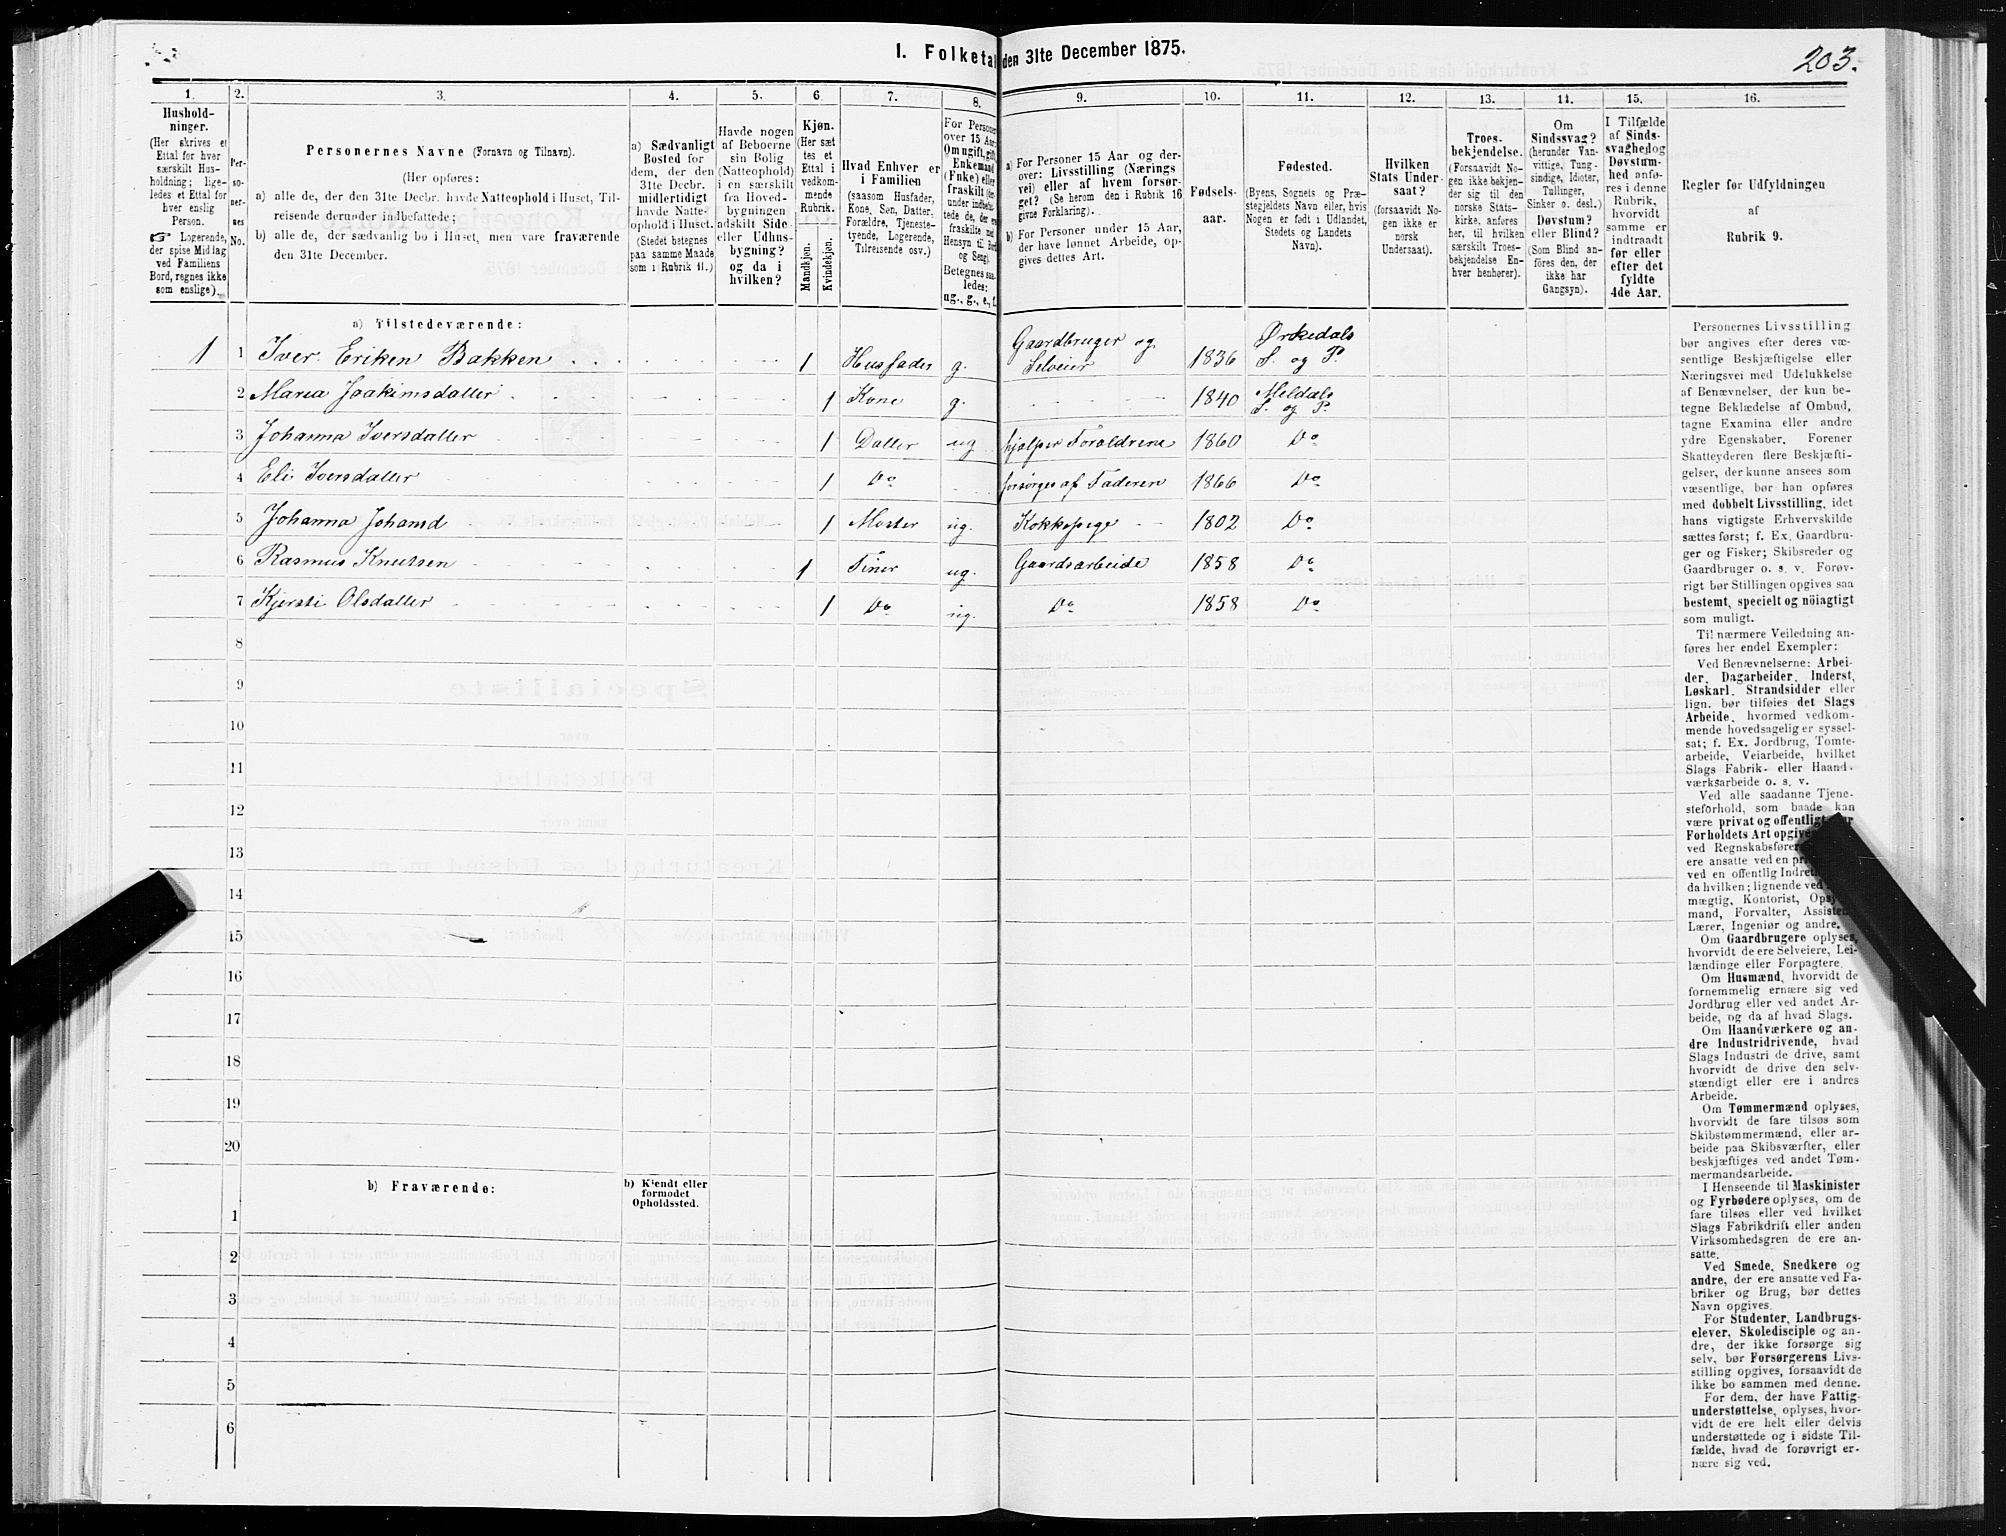 I. Folketal den 31te December 1875.
203.
1. 2. 3. 4. 5. 6. 7. 8. 9. 10. 11. 12. 13. 14. 15. 16.
Hushold-
ninger.
(Her skrives et
Ettal for hver
særskilt Hus-
holdning; lige-
ledes et Ettal for
hver enslig
Person.
☞ Logerende,
der spise Middag
ved Familiens
Bord, regnes ikke
som enslige).
Per-
so-
ner-
nes
No.
Personernes Navne (Fornavn og Tilnavn).
(Her opføres:
a) alle de, der den 31te Decbr. havde Natteophold i Huset, Til-
reisende derunder indbefattede;
b) alle de, der sædvanlig bo i Huset, men vare fraværende
den 31te December.
a) Sædvanligt
Bosted for
dem, der den
31te Decbr.
midlertidigt
havde Natte-
ophold i Huset.
(Stedet betegnes
paa samme Maade
som i Rubrik 11.)
Havde nogen
af Beboerne
sin Bolig
(Natteophold)
i en særskilt
fra Hoved-
bygningen
adskilt Side-
eller Udhus-
bygning?
og da i
hvilken?
Kjøn.
(Her sæt-
tes et
Ettal i
vedkom-
mende
Rubrik.
Mandkjøn.
Kvindekjøn.
Hvad Enhver er
i Familien
(saasom Husfader,
Kone, Søn, Datter,
Forældre, Tjeneste-
tyende, Logerende,
Tilreisende osv.)
For Personer
over 15 Aar:
Om ugift, gift,
Enkemand
(Enke) eller
fraskilt
Betegnes saa-
ledes:
ug., g., e., f.
a) For Personer 15 Aar og der-
over: Livsstilling (Nærings
vei) eller af hvem forsør-
get? (Se herom den i Rubrik 16
givne Forklaring).
b) For Personer under 15 Aar,
der have lønnet Arbeide, op-
gives dettes Art.
Fødsels-
aar.
Fødested.
(Byens, Sognets og Præ-
stegjeldets Navn eller, hvis
Nogen er født i Udlandet,
Stedets og Landets
Navn).
Hvilken
Stats Under-
saat?
(forsaavidt No-
gen ikke er
norsk
Undersaat).
Troes-
bekjendelse.
(Forsaavidt No-
gen ikke bekjen-
der sig til den
norske Stats-
kirke, anføres
her, til hvilken
særskilt Troes-
bekjendelse En-
hver henhører).
Om
Sindssvag?
(herunder Van-
vittige, Tung-
sindige, Idioter,
Tullinger,
Sinker o. desl.)
Døvstum?
eller Blind?
(Som Blind an-
føres den, der
ikke har
Gangsyn).
I Tilfælde
af Sinds-
svaghed og
Døvstum-
hed anfø-
res i denne
Rubrik,
hvorvidt
samme er
indtraadt
før eller
efter det
fyldte
4de Aar.
Regler for Udfyldningen
af
Rubrik 9.
a) Tilstedeværende:
1 1 Iver Eriksen Bakken 1 Husfader g. Gaardbruger og Selveier 1836 Ørkedals S. og P.
2 Maria Joakimsdatter 1 Kone g. 1840 Meldals S. og P.
3 Johanna Iversdatter 1 Datter ug hjælper Forældrene 1860 Do
4 Eli Iversdatter 1 Do forsørges af Faderen 1866 Do
5 Johanna Johansd 1 Moster ug. Kokkepige 1802 Do
6 Rasmus Knutsen 1 Tiner ug. Gaardsarbeide 1858 Do
7 Kjersti Olsdatter 1 Do ug. Do 1858 Do
8
9
10
11
12
13
14
15
16
17
18
19
20
b) Fraværende:
b) Kjendt eller
formodet
Opholdssted.
1
2
3
4
5
6
Personernes Livsstilling
bør angives efter deres væ-
sentlige Beskjæftigelse eller
Næringsvei med Udelukkelse
af Benævnelser, der kun be-
tegne Beklædelse af Ombud,
tagne Examina eller andre
ydre Egenskaber. Forener
Skatteyderen flere Beskjæfti-
gelser, der kunne ansees som
væsentlige, bør han opføres
med dobbelt Livsstilling, idet
hans vigtigste Erhvervskilde
sættes først; f. Ex. Gaardbru-
ger og Fisker; Skibsreder og
Gaardbruger o. s. v. Forøv-
rigt bør Stillingen opgives saa
bestemt, specielt og nöiagtigt
som muligt.
Til nærmere Veiledning an-
føres her endel Exempler:
Ved Benævnelserne: Arbei-
der, Dagarbeider, Inderst,
Løskarl, Strandsidder eller
lign. bør tilføies det Slags
Arbeide, hvormed vedkom-
mende hovedsagelig er syssel-
sat; f. Ex. Jordbrug, Tomte-
arbeide, Veiarbeide, hvilket
Slags Fabrik- eller Haand-
værksarbeide o. s. v.
Ved alle saadanne Tjene-
steforhold, som baade kan
være privat og offentligt, bør
Forholdets Art opgives
ved Regnskabsfører
ere ansatte ved en
ved en offentlig
da hvilken; lignende ved
mægtig, Kontorist,
mand, Forvalter, Assistent
Lærer, Ingeniør og andre.
Om Gaardbrugere oplyses,
hvorvidt de ere Selveiere, Lei-
lændinge eller Forpagtere.
Om Husmænd, hvorvidt de
fornemmelig ernære sig ved
Jordbrug eller ved andet Ar-
beide, og da af hvad Slags.
Om Haandværkere og an-
dre Industridrivende, hvad
Slags Industri de drive, samt
hvorvidt de drive den selv-
stændigt eller ere i andres
Arbeide.
Om Tømmermænd oplyses,
hvorvidt de fare tilsøs som
Skibstømmermænd, eller ar-
beide paa Skibsværfter, eller
beskjæftiges ved andet Tøm-
mermandsarbeide.
I Henseende til Maskinister
og Fyrbødere oplyses, om de
fare tilsøs eller ved hvilket
Slags Fabrikdrift eller anden
Virksomhedsgren de ere an-
satte.
Ved Smede, Snedkere og
andre, der ere ansatte ved Fa-
briker og Brug, bør dettes
Navn opgives.
For Studenter, Landbrugs-
elever, Skoledisciple og an-
dre, der ikke forsørge sig
selv, bør Forsørgerens Livs-
stilling opgives, forsaavidt de
ikke bo sammen med denne.
For dem, der have Fattig-
understøttelse, oplyses, hvor-
vidt de ere helt eller delvis
understøttede og i sidste Til-
fælde, hvad de forøvrigt er-
nære sig ved.